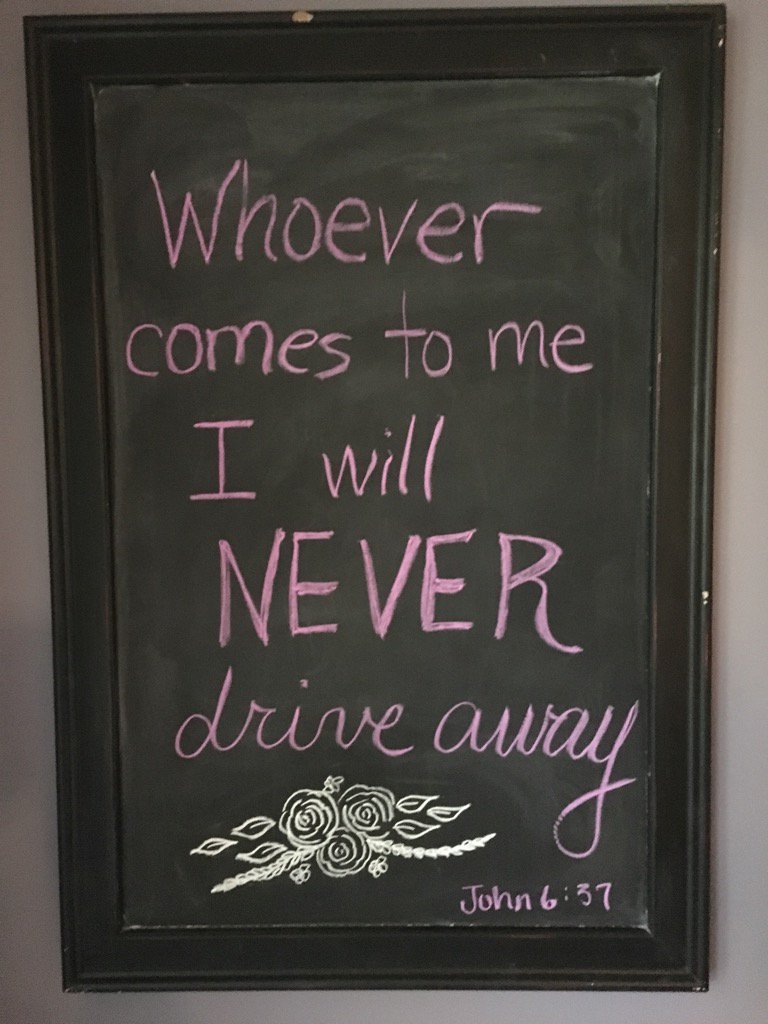 Whoever
comes to me
I will
NEVER
drive away
John 6:37